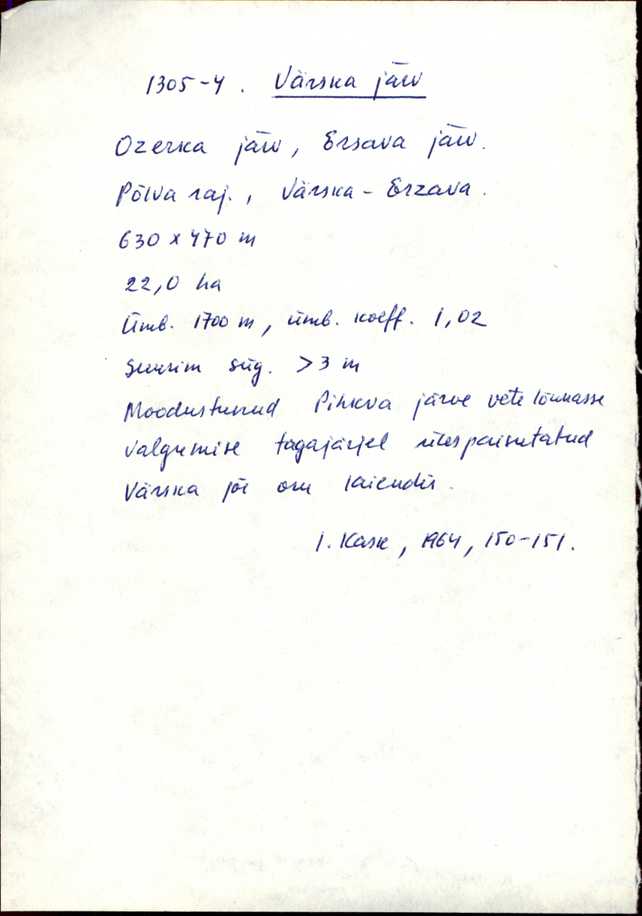 1305-4. Värska järv
Ozerka järv, Ersava järv.
Põlva raj., Värska - Erzava.
630 x 470 m
22,0 ha
Ümb. 1700 m, ümb. koeff. 1,02
Suurim süg. >3 m
Moodustunud Pihkva järve vete lõunasse
valgumise tagajärjel ülespaisutatud
Värska jõe oru laiendis.
I. Kask, 1964, 150-151.